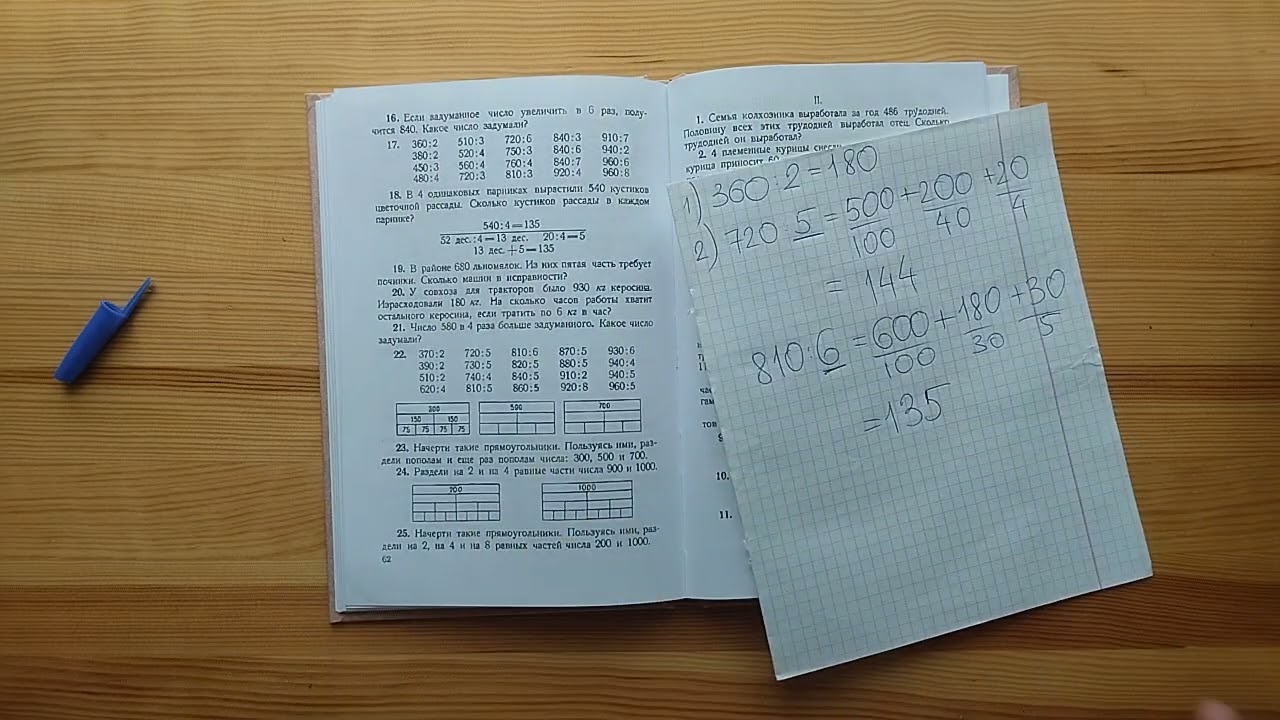 16. Если задуманное число увеличить в 6 раз, полу-
чится 840. Какое число задумали?
17. 360:2 510:3 720:6 840:3 910:7
380:2 520:4 750:3 840:6 940:2
450:3 560:4 760:4 840:7 960:6
480:4 720:3 810:3 920:4 960:8
18. В 4 одинаковых парниках вырастили 540 кустиков
цветочной рассады. Сколько кустиков рассады в каждом
парнике?
540:4=135
52 дес.:4=13 дес. 20:4=5
13 дес.+5=135
19. В районе 680 льномялок. Из них пятая часть требует
починки. Сколько машин в исправности?
20. У совхоза для тракторов было 930 кг керосина.
Израсходовали 180 кг. На сколько часов работы хватит
остального керосина, если тратить по 6 кг в час?
21. Число 580 в 4 раза больше задуманного. Какое число
задумали?
22. 370:2 720:5 810:6 870:5 930:6
390:2 730:5 820:5 880:5 940:4
510:2 740:4 840:5 910:2 940:5
620:4 810:5 860:5 920:8 960:5
300 500 700
150 150
75 75 75 75
23. Начерти такие прямоугольники. Пользуясь ими, раз-
дели пополам и еще раз пополам числа: 300, 500 и 700.
24. Раздели на 2 и на 4 равные части числа 900 и 1000.
1000
25. Начерти такие прямоугольники. Пользуясь ими, раз-
дели на 2, на 4 и на 8 равных частей числа 200 и 1000.
62
II.
1. Семья колхозника выработала за год 486 трудодней.
Половину всех этих трудодней выработал отец. Сколько
трудодней он выработал?
2. 4 племенные курицы
курица приносит
10.
11.
1) 360:2=180
2) 720:5=500+200+20
100 40 4
=144
810:6=600+180+30
100 30 5
=135